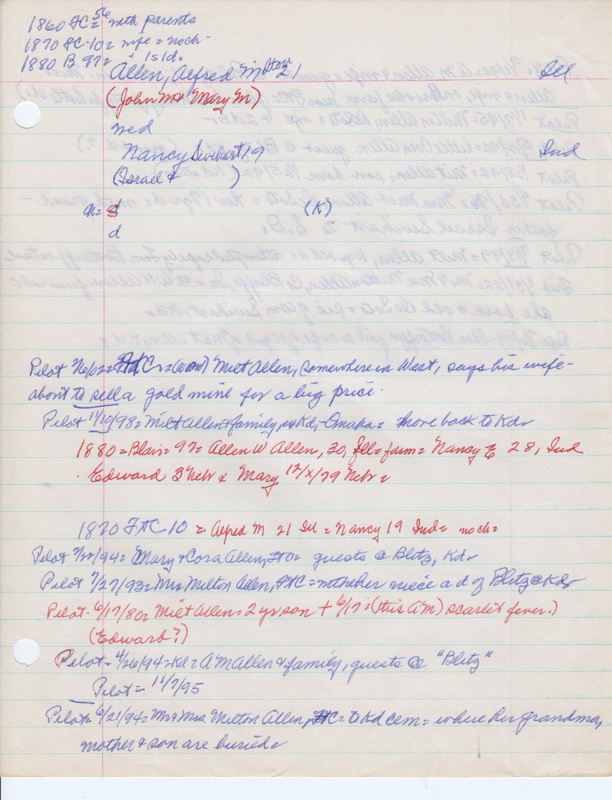 1860 FC = 56 with parents
1870 FC-10 = wife = noch-
1880 B 97 = " 1s1d.
Allen, Alfred M 21 Ill
(John M & Mary M)
wed
Nancy Swihart 19 Ind
(Israel & )
(K)
d
Pilot 7/6/02 = FtC = Milt Allen, somewhere in West, says his wife-
about to sell a gold mine for a big price.
Pilot 11/10/98 = Milt Allen & family, Kd,-Omaha = move back to Kd
1880 = Blair = 97 = Allen W Allen, 30, Ill = farm = Nancy E 28, Ind
Edward 3 Nebr & Mary 12/x/79 Nebr =
1870 FtC 10 = Alfred M 21 Ill = Nancy 19 Ind = noch =
Pilot 7/ /94 = Mary & Cora Allen, guests @ Blitz, Kd
Pilot 7/27/93 = Mrs Milton Allen, FtC = niece a d of Blitz @ Kd
Pilot 6/17/80 = Milt Allen = 2 yr son + 6/17: (this AM) scarlet fever.)
(Edward?)
Pilot = 4/26/94 = Kd = A M Allen & family, guests @ "Blitz"
Pilot = 11/7/95
Pilot = 6/21/94 = Mr & Mrs Milton Allen, FtC = to Kd cem = where her grandma,
mother & son are buried